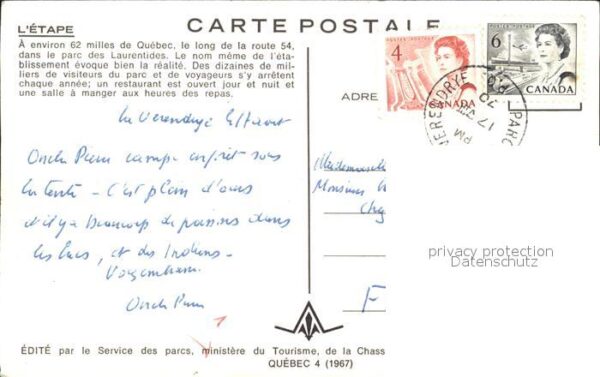 CARTE POSTALE
L'ÉTAPE
À environ 62 milles de Québec, le long de la route 54,
dans le parc des Laurentides. Le nom même de l'éta-
blissement évoque bien la réalité. Des dizaines de mil-
liers de visiteurs du parc et de voyageurs s'y arrêtent
chaque année; un restaurant est ouvert jour et nuit et
une salle à manger aux heures des repas.
4
POSTES POSTAGE
CANADA
POSTES POSTAGE
6
CANADA
PARC
VERENDRYE
PM
17
VIII
70
P.Q.
ADRE
la Verendrye
Oncle Pierre campe sous
la tente - C'est plein d'ours
et il y a beaucoup de poissons dans
les lacs, et des Indiens.
Oncle Pierre
Monsieur
F
privacy protection
Datenschutz
ÉDITÉ par le Service des parcs, ministère du Tourisme, de la Chass
QUÉBEC 4 (1967)